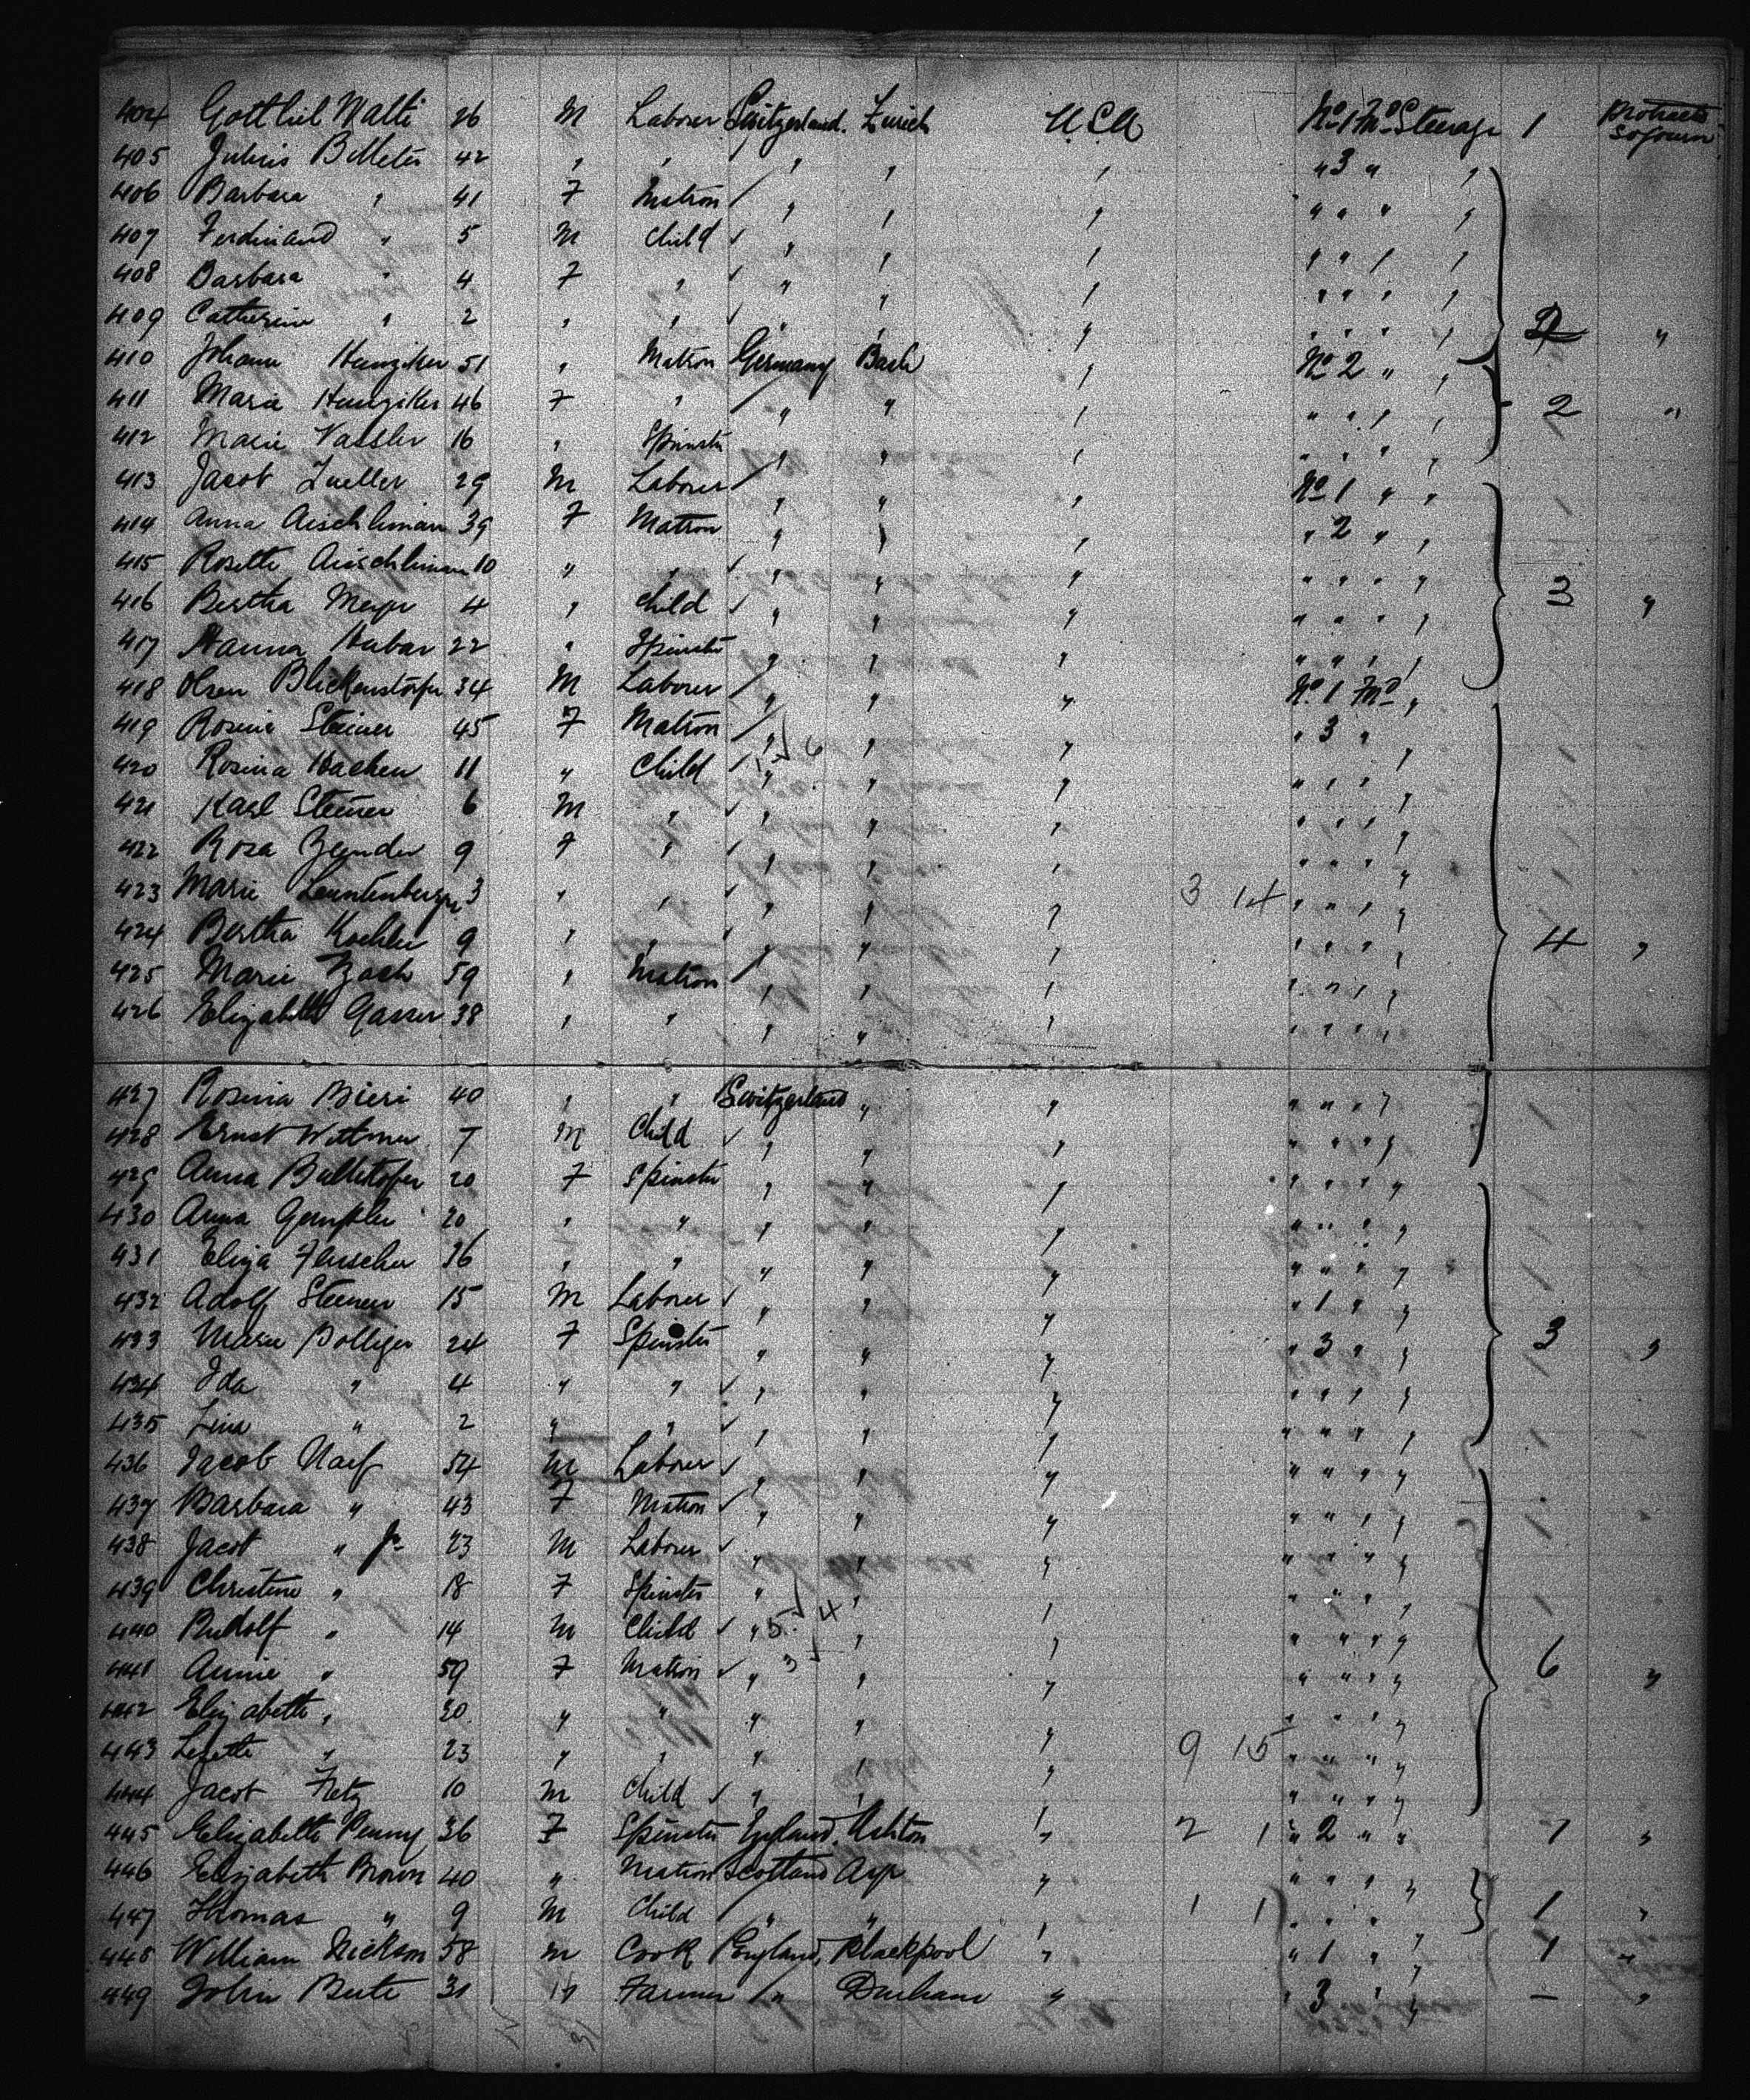 404 Gottlieb Walti 26 M Laborer Switzerland. Zurich U.S.A No 1 Md Steerage 1 Protracted sojourn
405 Julius Billeter 42 " " " " " " 3 " "
406 Barbara " 41 F Matron " " " " " " "
407 Ferdinand " 5 M Child " " " " " " "
408 Barbara " 4 F " " " " " " " "
409 Catherine " 2 " " " " " " " " " 2 "
410 Johann Hunziker 51 " Matron Germany Basle " No 2 " "
411 Maria Hunziker 46 F " " " " " " " " 2 "
412 Marie Vassler 16 " Spinster " " " " " " "
413 Jacob Zueller 29 M Laborer " " " No 1 " "
414 Anna Aischliman 39 F Matron " " " " 2 " "
415 Rosette Aischliman 10 " " " " " " " " "
416 Bertha Meyr 4 " Child " " " " " " " 3 "
417 Hanna Hubar 22 " Spinster " " " " " " "
418 Blickenstorfer 34 M Laborer " " " No 1 Md "
419 Rosina Steiner 45 F Matron " " " " 3 " "
420 Rosina Hachen 11 " Child " " " " " " "
421 Karl Steiner 6 M " " " " " " " "
422 Rosa Zender 9 F " " " " " " " "
423 Marie Leuntenberger 3 " " " " " 3 14 " " " "
424 Bertha Koehler 9 " " " " " " " " " 4 "
425 Marie 59 " Matron " " " " " " "
426 Elizabeth Gasser 38 " " " " " " " " "
427 Rosina Bieri 40 " " Switzerland " " " " " "
428 Ernst Wittmer 7 M Child " " " " " " "
429 Anna 20 F Spinster " " " " " " "
430 Anna Gempeler 20 " " " " " " " " "
431 Eliza Fluscher 36 " " " " " " " " "
432 Adolf Steiner 15 M Laborer " " " " 1 " "
433 Marie Bolliger 24 F Spinster " " " " 3 " " 3 "
434 Ida " 4 " " " " " " " " "
435 Lina " 2 " " " " " " " " "
436 Jacob Naef 54 M Laborer " " " " " " "
437 Barbara " 43 F Matron " " " " " " "
438 Jacob " Jr 23 M Laborer " " " " " " "
439 Christine " 18 F Spinster " " " " " " "
440 Rudolf " 14 M Child " " " " " " "
441 Annie " 59 F Matron " " " " " " " 6 "
442 Elizabeth " 20 " " " " " " " " "
443 Lisette " 23 " " " " " 9 15 " " " "
444 Jacob Fretz 10 M Child " " " " " " "
445 Elizabeth Penny 36 F Spinster England, Ashton " 2 1 " 2 " " 1 "
446 Elizabeth Brown 40 " Matron Scotland Ayr " " " " "
447 Thomas " 9 M Child " " " 1 1 " " " " 1 "
448 William Dickson 58 M Cook England, Blackpool " " 1 " " 1 "
449 John Bute 31 M Farmer " Durham " " 3 " " — "